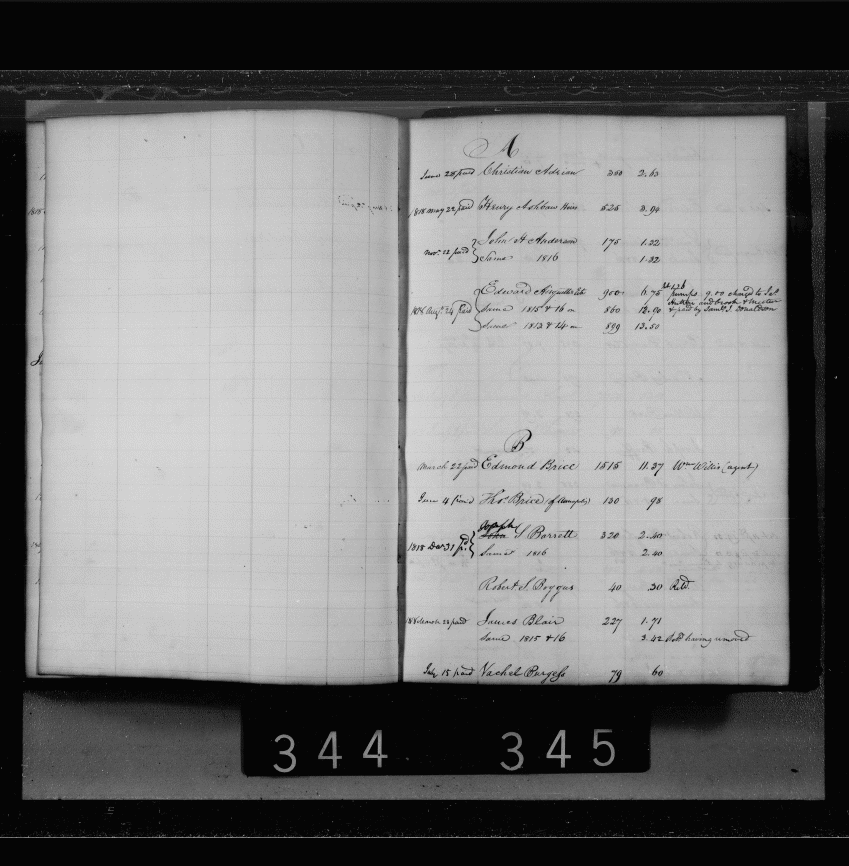 1818
A
June 28 paid Christian Adrian 350 2.63
1818 May 22 paid Henry Ashbaw Heirs 525 3.94
Nov. 12 paid John H Anderson 175 1.32
Same 1816 1.32
1818 Aug. 24 paid Edward 900 6.75
pumps 9.00 charged to Jas
and brook &
Same 1815 & 16 860 12.90 & paid by Saml. J. Donaldson
Same 1813 & 14 899 13.50
B
March 22 paid Edmond Brice 1515 11.37 Wm Willis (agent)
June 4 paid Thos. Brice (of Annapolis) 130 98
Joseph
1818 Dec 31 pd. John S Barrett 320 2.40
Same 1816 2.40
Robert S. Boggus 40 .30
March 28 paid James Blair 227 1.71
Same 1815 & 16 3.42 having removed
July 15 paid Vachel Burgess 79 60
344 345